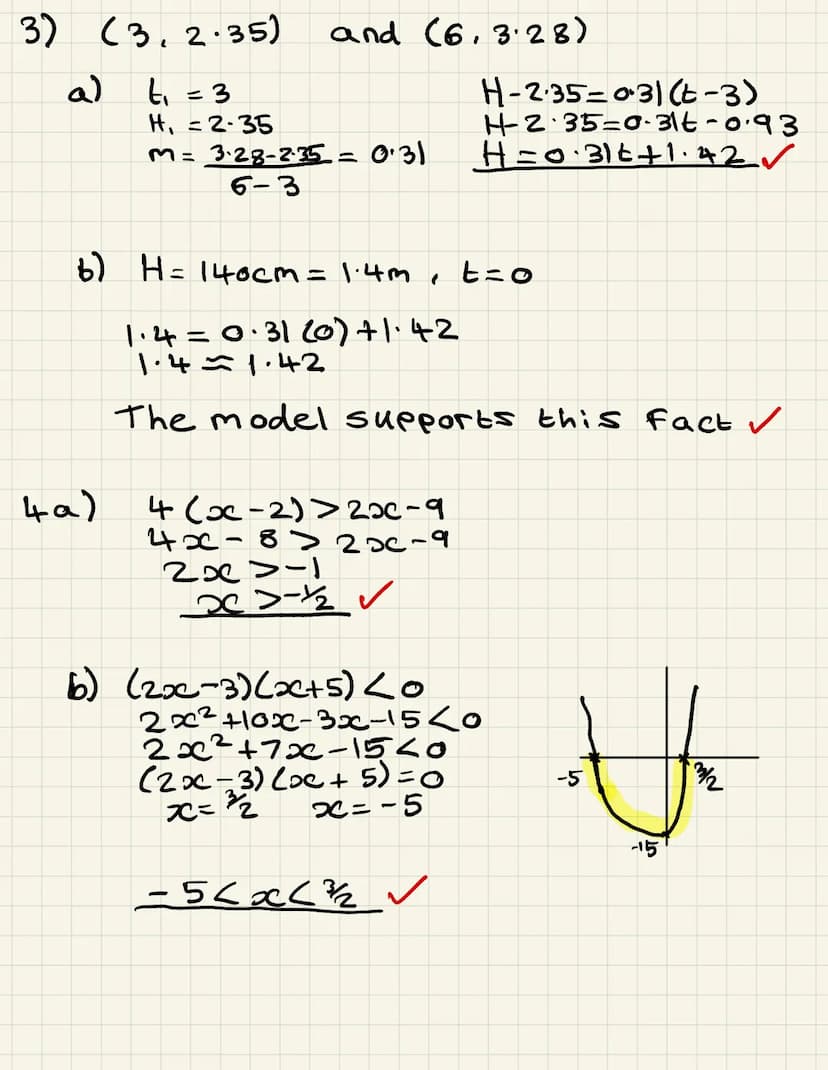 3) (3, 2.35) and (6, 3.28)
a) t₁ = 3
H₁ = 2.35
m = (3.28-2.35)/(6-3) = 0.31
H-2.35=0.31(t-3)
H-2.35=0.31t-0.93
H=0.31t+1.42 ✓
b) H = 140cm = 1.4m, t=0
1.4 = 0.31(0)+1.42
1.4 ≈ 1.42
The model supports this fact ✓
4a) 4(x-2)>2x-9
4x-8>2x-9
2x>-1
x>-1/2 ✓
b) (2x-3)(x+5)<0
2x²+10x-3x-15<0
2x²+7x-15<0
(2x-3)(x+5)=0
x=3/2 x=-5
-5 3/2
-15
-5<x<3/2 ✓